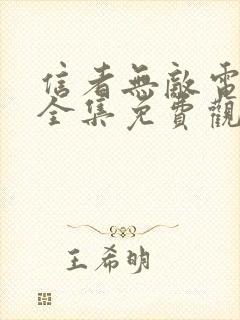 信者無敵電
全集免費觀
王希明